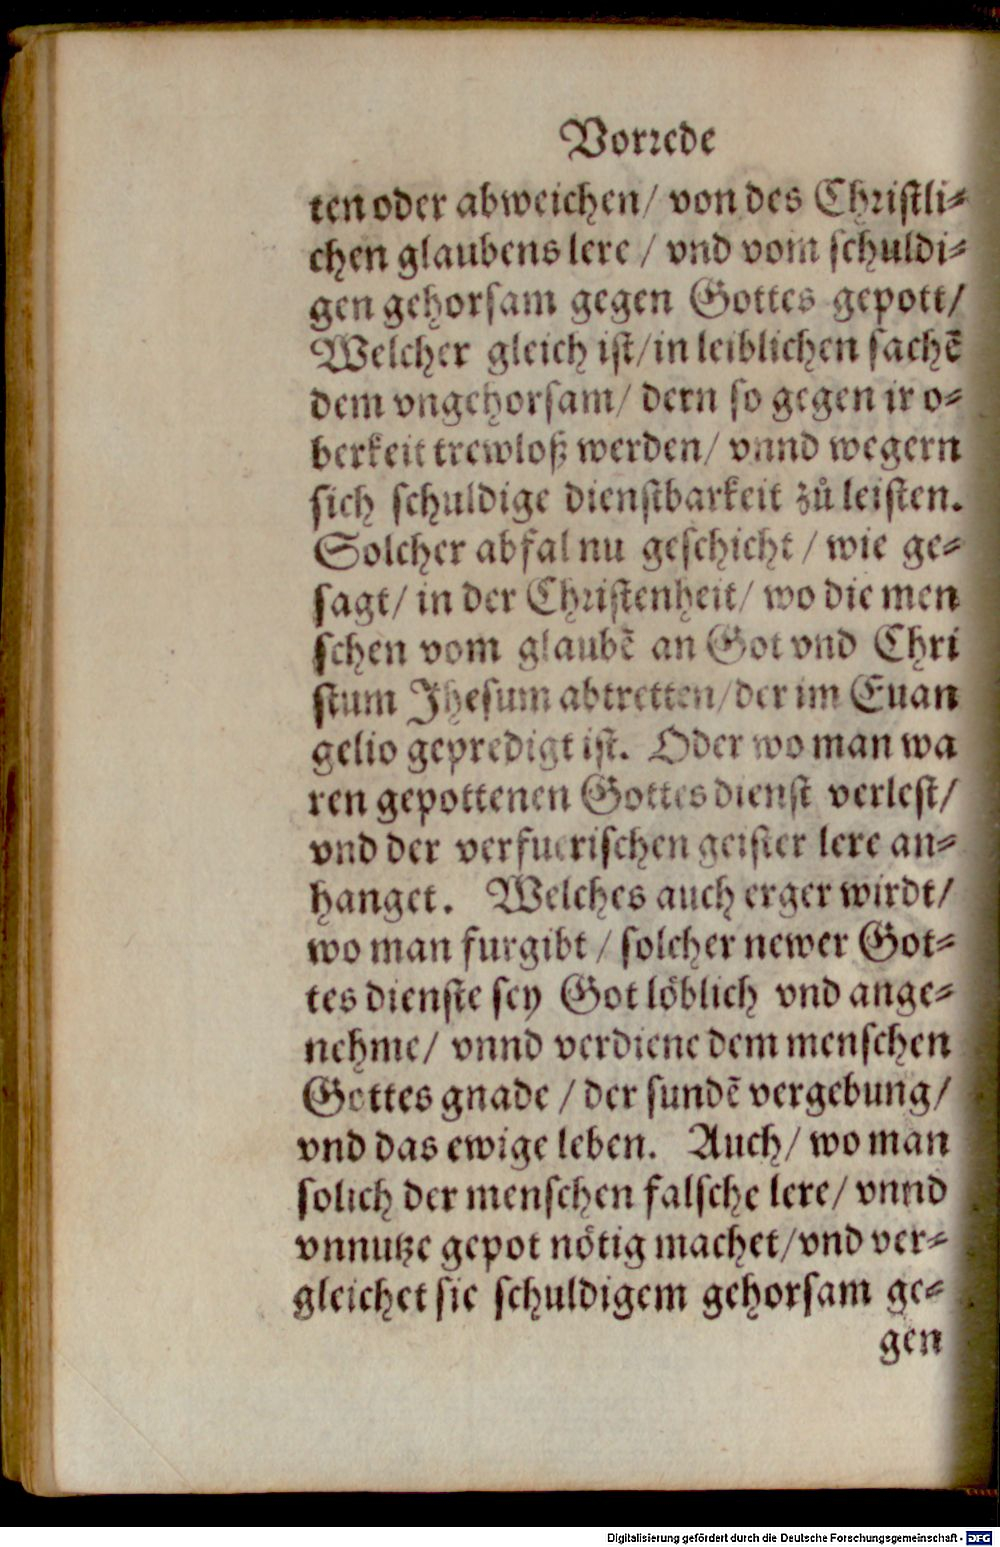 Vorrede
ten oder abweichen/ von des Christli⸗
chen glaubens lere / vnd vom schuldi⸗
gen gehorsam gegen Gottes gepott/
Welcher gleich ist/in leiblichen sachē
dem vngehorsam/ dern so gegen ir o⸗
berkeit trewloß werden/ vnnd wegern
sich schuldige dienstbarkeit zů leisten.
Solcher abfal nu geschicht / wie ge⸗
sagt/ in der Christenheit/ wo die men
schen vom glaubē an Got vnd Chri
stum Jhesum abtretten/der im Euan
gelio gepredigt ist. Oder wo man wa
ren gepottenen Gottes dienst verlest/
vnd der verfuerischen geister lere an⸗
hanget. Welches auch erger wirdt/
wo man furgibt / solcher newer Got⸗
tes dienste sey Got löblich vnd ange⸗
nehme/ vnnd verdiene dem menschen
Gottes gnade / der sundē vergebung/
vnd das ewige leben. Auch/ wo man
solich der menschen falsche lere/ vnnd
vnnutze gepot nötig machet/vnd ver⸗
gleichet sie schuldigem gehorsam ge⸗
gen
Digitalisierung gefördert durch die Deutsche Forschungsgemeinschaft - DFG